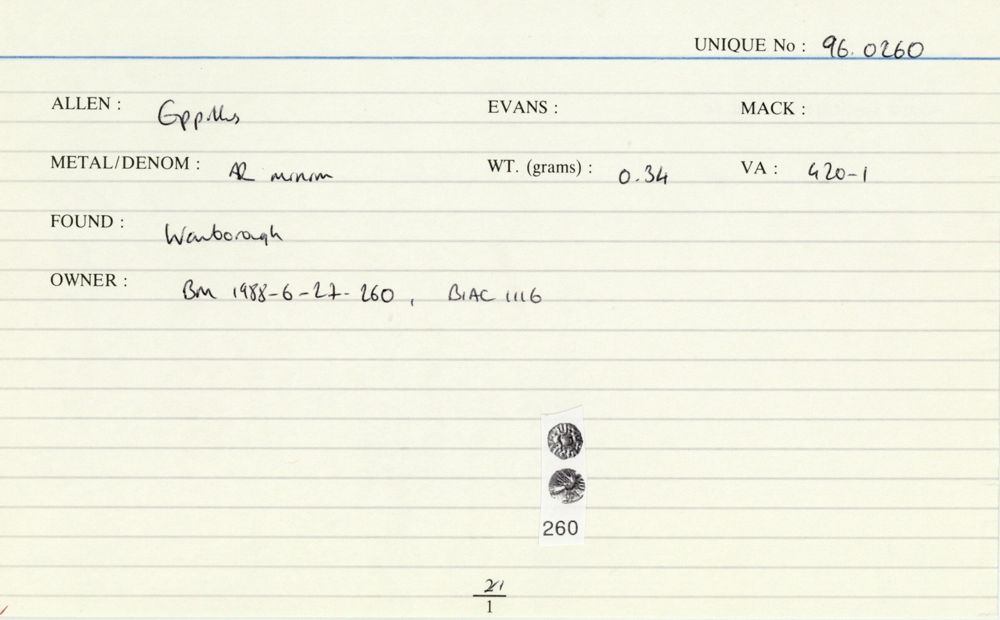 UNIQUE No : 96.0260
ALLEN : Eppillus EVANS : MACK :
METAL/DENOM : AR minim WT. (grams) : 0.34 VA : 420-1
FOUND : Wanborough
OWNER : BM 1988-6-27-260, BIAC 1116
260
21
1